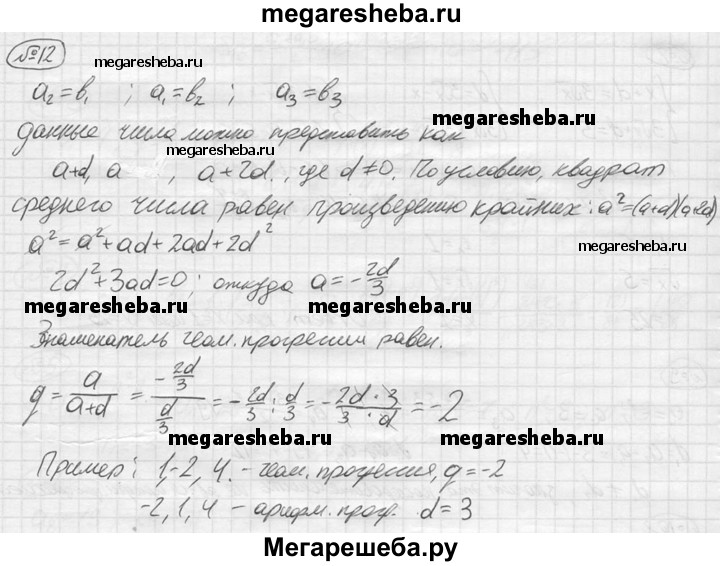 megaresheba.ru
№12
megaresheba.ru
a₂=b₁ ; a₁=b₂ ; a₃=b₃
megaresheba.ru
данные числа можно представить как
megaresheba.ru
a+d, a , a+2d, где d≠0. По условию, квадрат
среднего числа равен произведению крайних: a²=(a+d)(a+2d)
a²=a²+ad+2ad+2d²
megaresheba.ru
2d²+3ad=0; откуда a=-2d/3
megaresheba.ru megaresheba.ru
Знаменатель геом. прогрессии равен.
q = a/(a+d) = (-2d/3)/(d/3) = -2d/3 : d/3 = -(2d·3)/(3·d) = -2
megaresheba.ru megaresheba.ru
Пример: 1,-2, 4. - геом. прогрессия, q=-2
-2, 1, 4 - арифм. прог. d=3
megaresheba.ru megaresheba.ru
Мегарешеба.ру